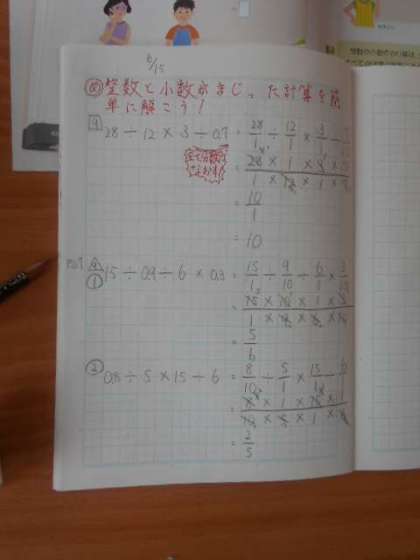 6/15
め 整数と小数がまじった計算を簡
単に解こう!
28 ÷ 12 × 3 ÷ 0.7 = 28/1 ÷ 12/1 × 3/1 ÷
全て分数に
なおす!
= 28 × 1 × 3 × 10 / 1 × 12 × 1 × 7
= 10/1
= 10
① 15 ÷ 0.9 ÷ 6 × 0.3 = 15/1 ÷ 9/10 ÷ 6/1 × 3/10
= 15 × 10 × 1 × 3 / 1 × 9 × 6 × 10
= 5/6
② 0.8 ÷ 5 × 15 ÷ 6 = 8/10 ÷ 5/1 × 15/1 ÷ 6/1
= 8 × 1 × 15 × 1 / 10 × 5 × 1 × 6
= 2/5